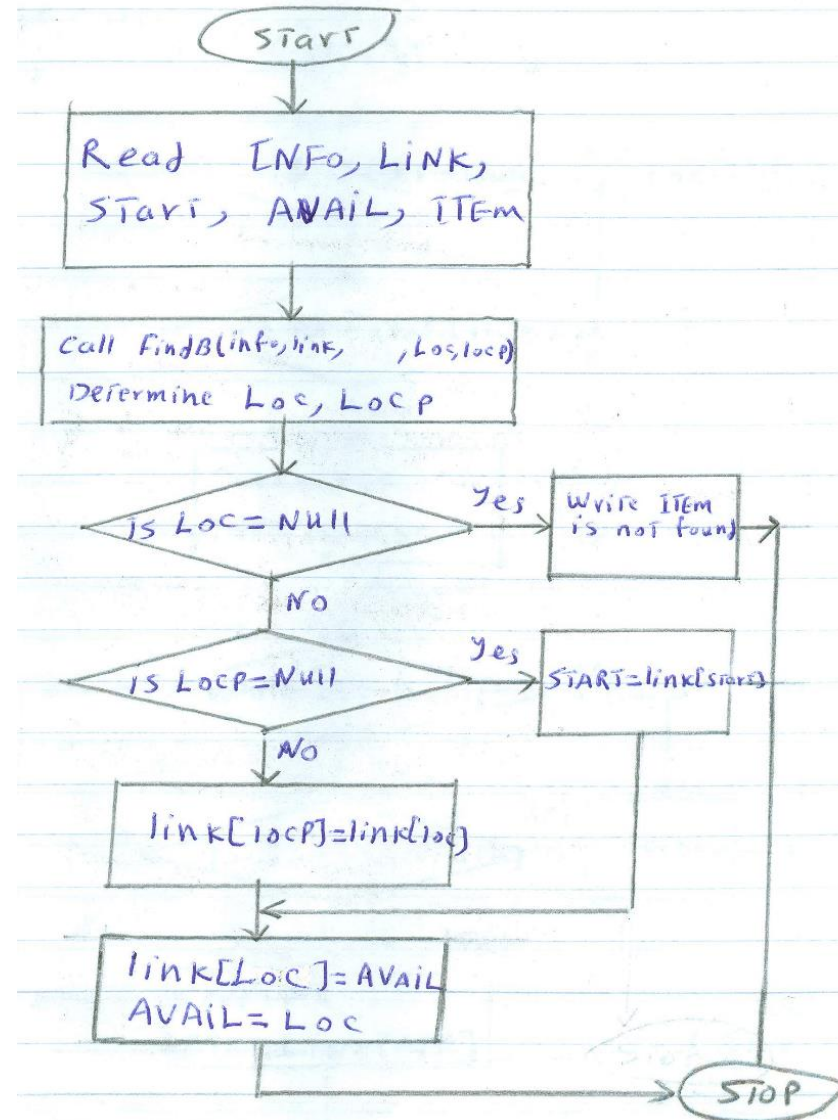 Start
Read INFO, LINK,
START, AVAIL, ITEM
Call FindB(info, link, , Loc, locp)
Determine Loc, LOCP
is LOC = NUll
Yes
Write ITEM
is not found
NO
is LOCP = NUll
Yes
START = link[Start]
NO
link[locP] = link[loc]
link[Loc] = AVAIL
AVAIL = Loc
STOP